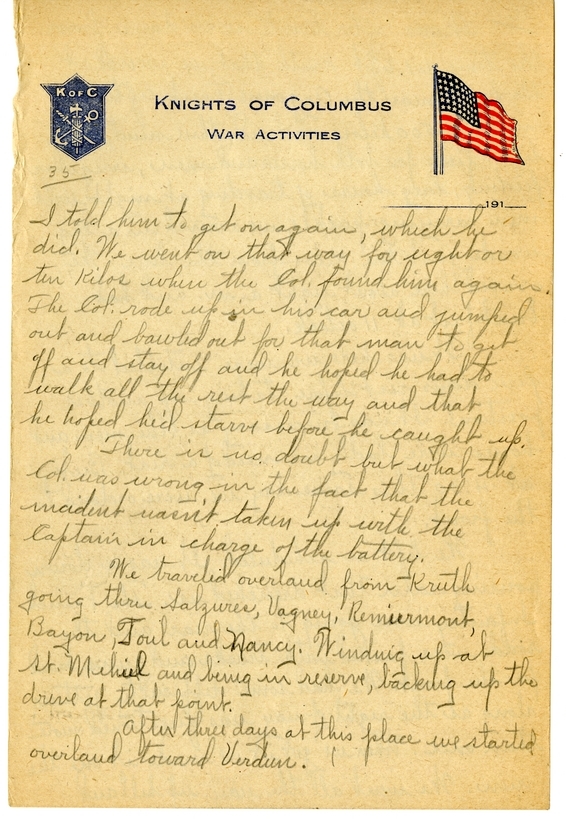 K OF C
KNIGHTS OF COLUMBUS
WAR ACTIVITIES
35
191
I told him to get on again, which he
did. We went on that way for eight or
ten Kilos when the Col. found him again.
The Col. rode up in his car and jumped
out and bawled out for that man to get
off and stay off and he hoped he had to
walk all the rest the way and that
he hoped he'd starve before he caught up.
There is no doubt but what the
Col. was wrong in the fact that the
incident wasn't taken up with the
Captain in charge of the battery.
We traveled overland from Kruth
going thru Salzures, Vagney, Remiermont,
Bayon, Toul and Nancy. Winding up at
St. Mehiel and being in reserve, backing up the
drive at that point.
After three days at this place we started
overland toward Verdun.